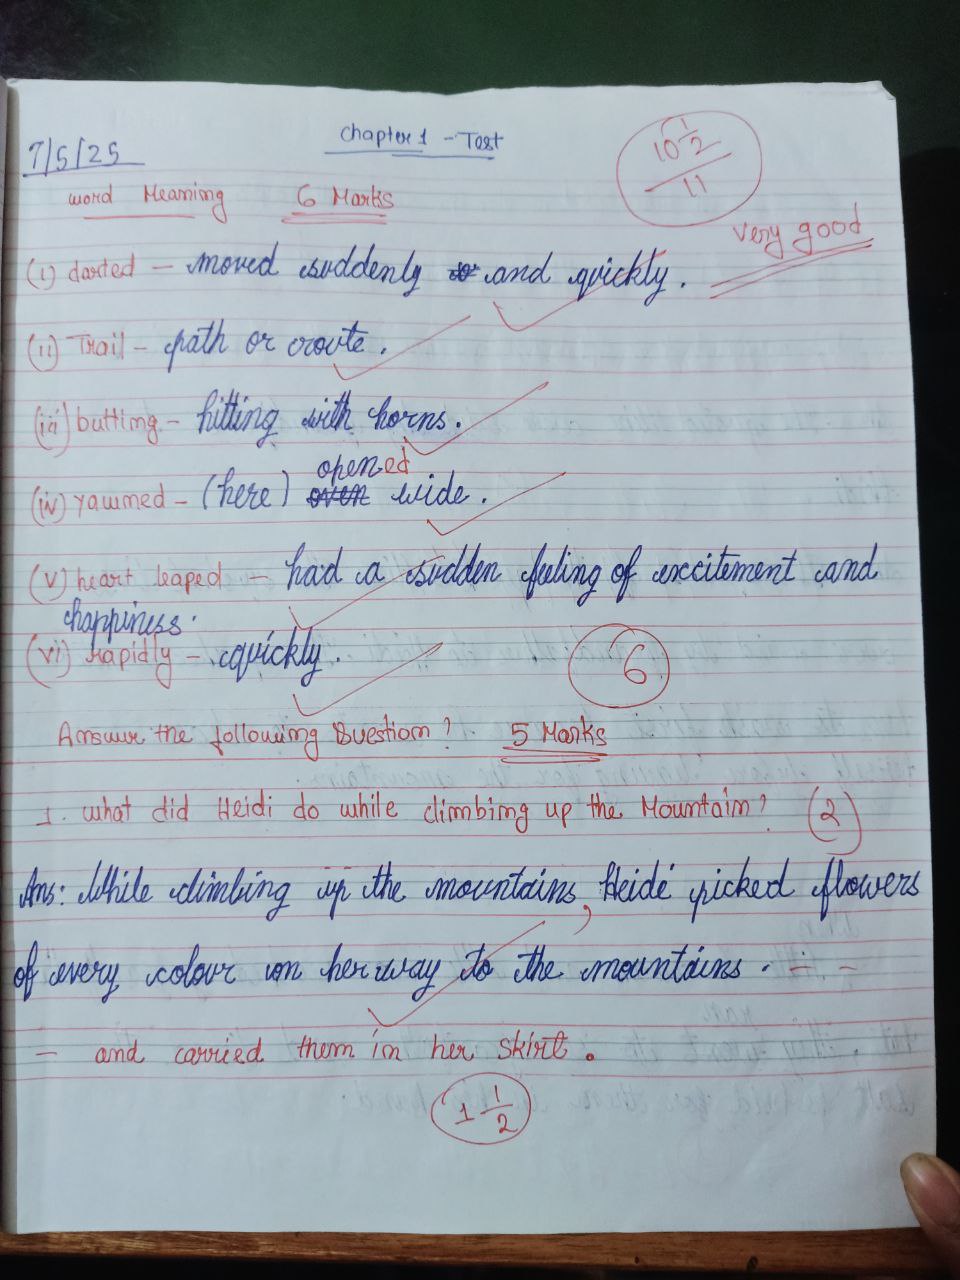 7/5/25
Chapter 1 - Test
10 1/2
11
word Meaning 6 Marks
very good
(i) darted - moved suddenly and quickly.
(ii) Trail - path or route.
(iii) butting - hitting with horns.
opened
(iv) yawned - (here) oven wide.
(v) heart leaped - had a sudden feeling of excitement and
happiness.
(vi) rapidly - quickly.
6
Answer the following Question? 5 Marks
1. what did Heidi do while climbing up the Mountain? (2)
Ans: While climbing up the mountains, Heidi picked flowers
of every colour on her way to the mountains. - -
- and carried them in her skirt.
1 1/2